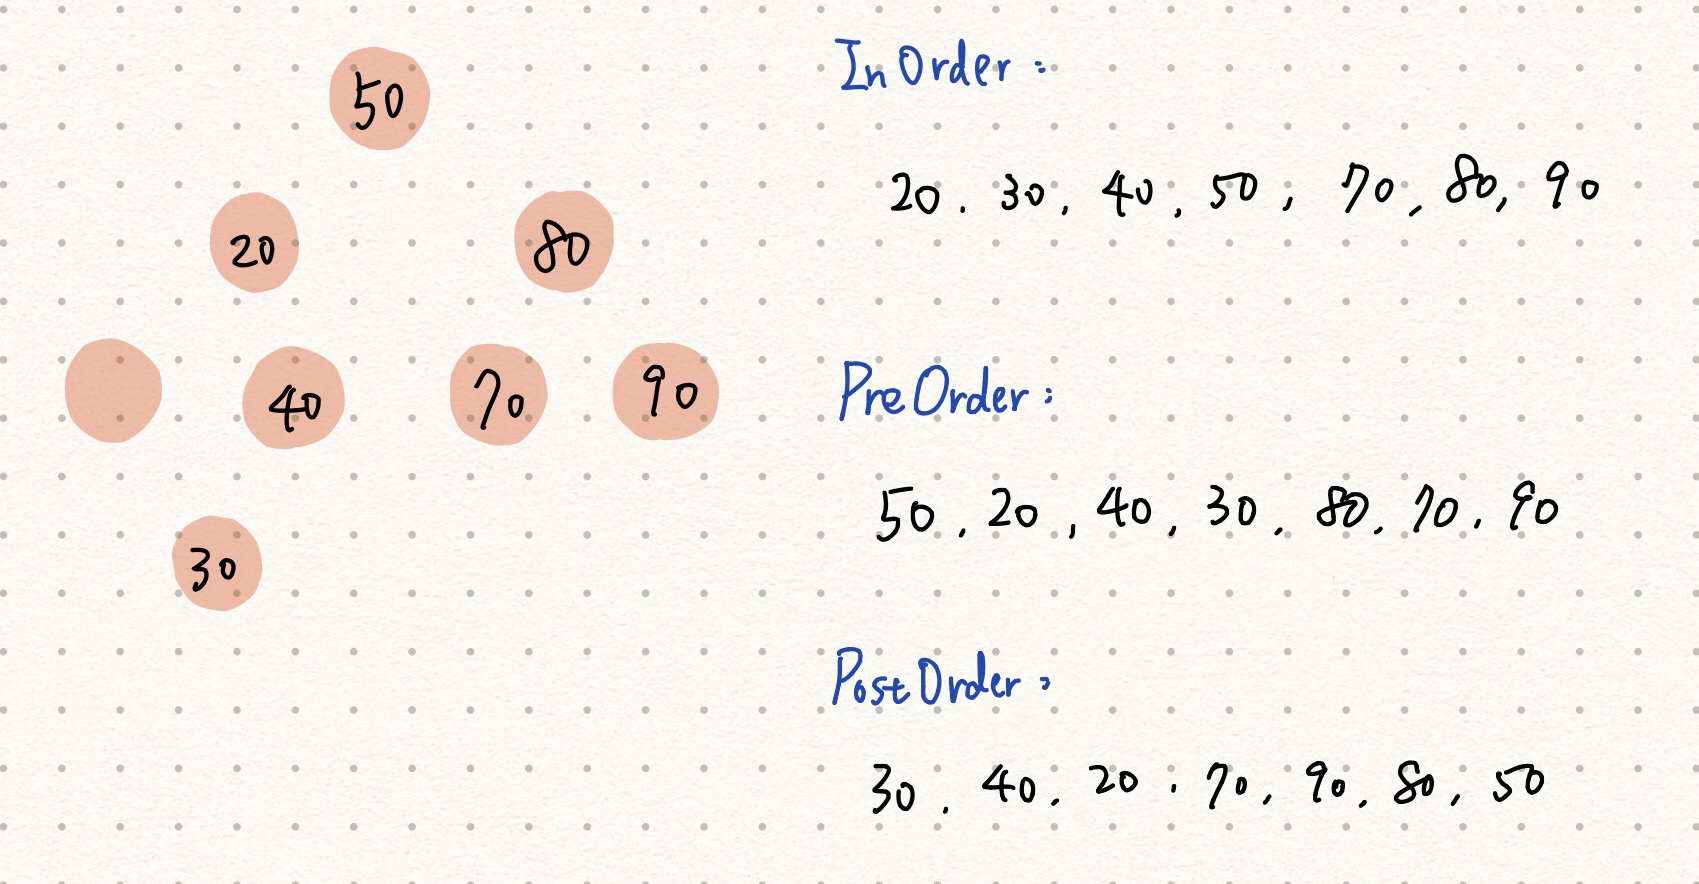 50
20 80
40 70 90
30
In Order :
20 . 30 , 40 , 50 , 70 , 80, 90
Pre Order :
50 . 20 , 40 , 30 . 80 . 70 . 90
Post Order :
30 . 40 . 20 . 70 , 90 . 80 , 50